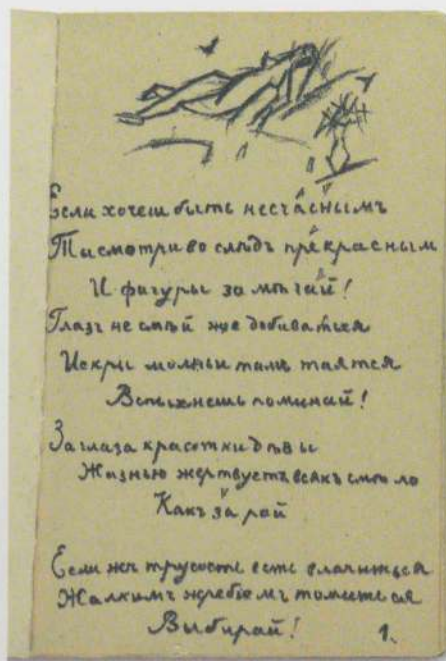 Если хочеш быть несчасным
Ты смотри во слѣдъ прекрасным
И фигуры замѣчай!
Глазъ не смѣй же добиваться
Искры молньи тамъ таятся
Вспыхнешь поминай!
За глаза красотки дѣвы
Жизнью жертвуетъ всякъ смѣло
Какъ за рай
Если жъ трусость есть влачиться
Жалкимъ жребіемъ томиться
Выбирай!
1.